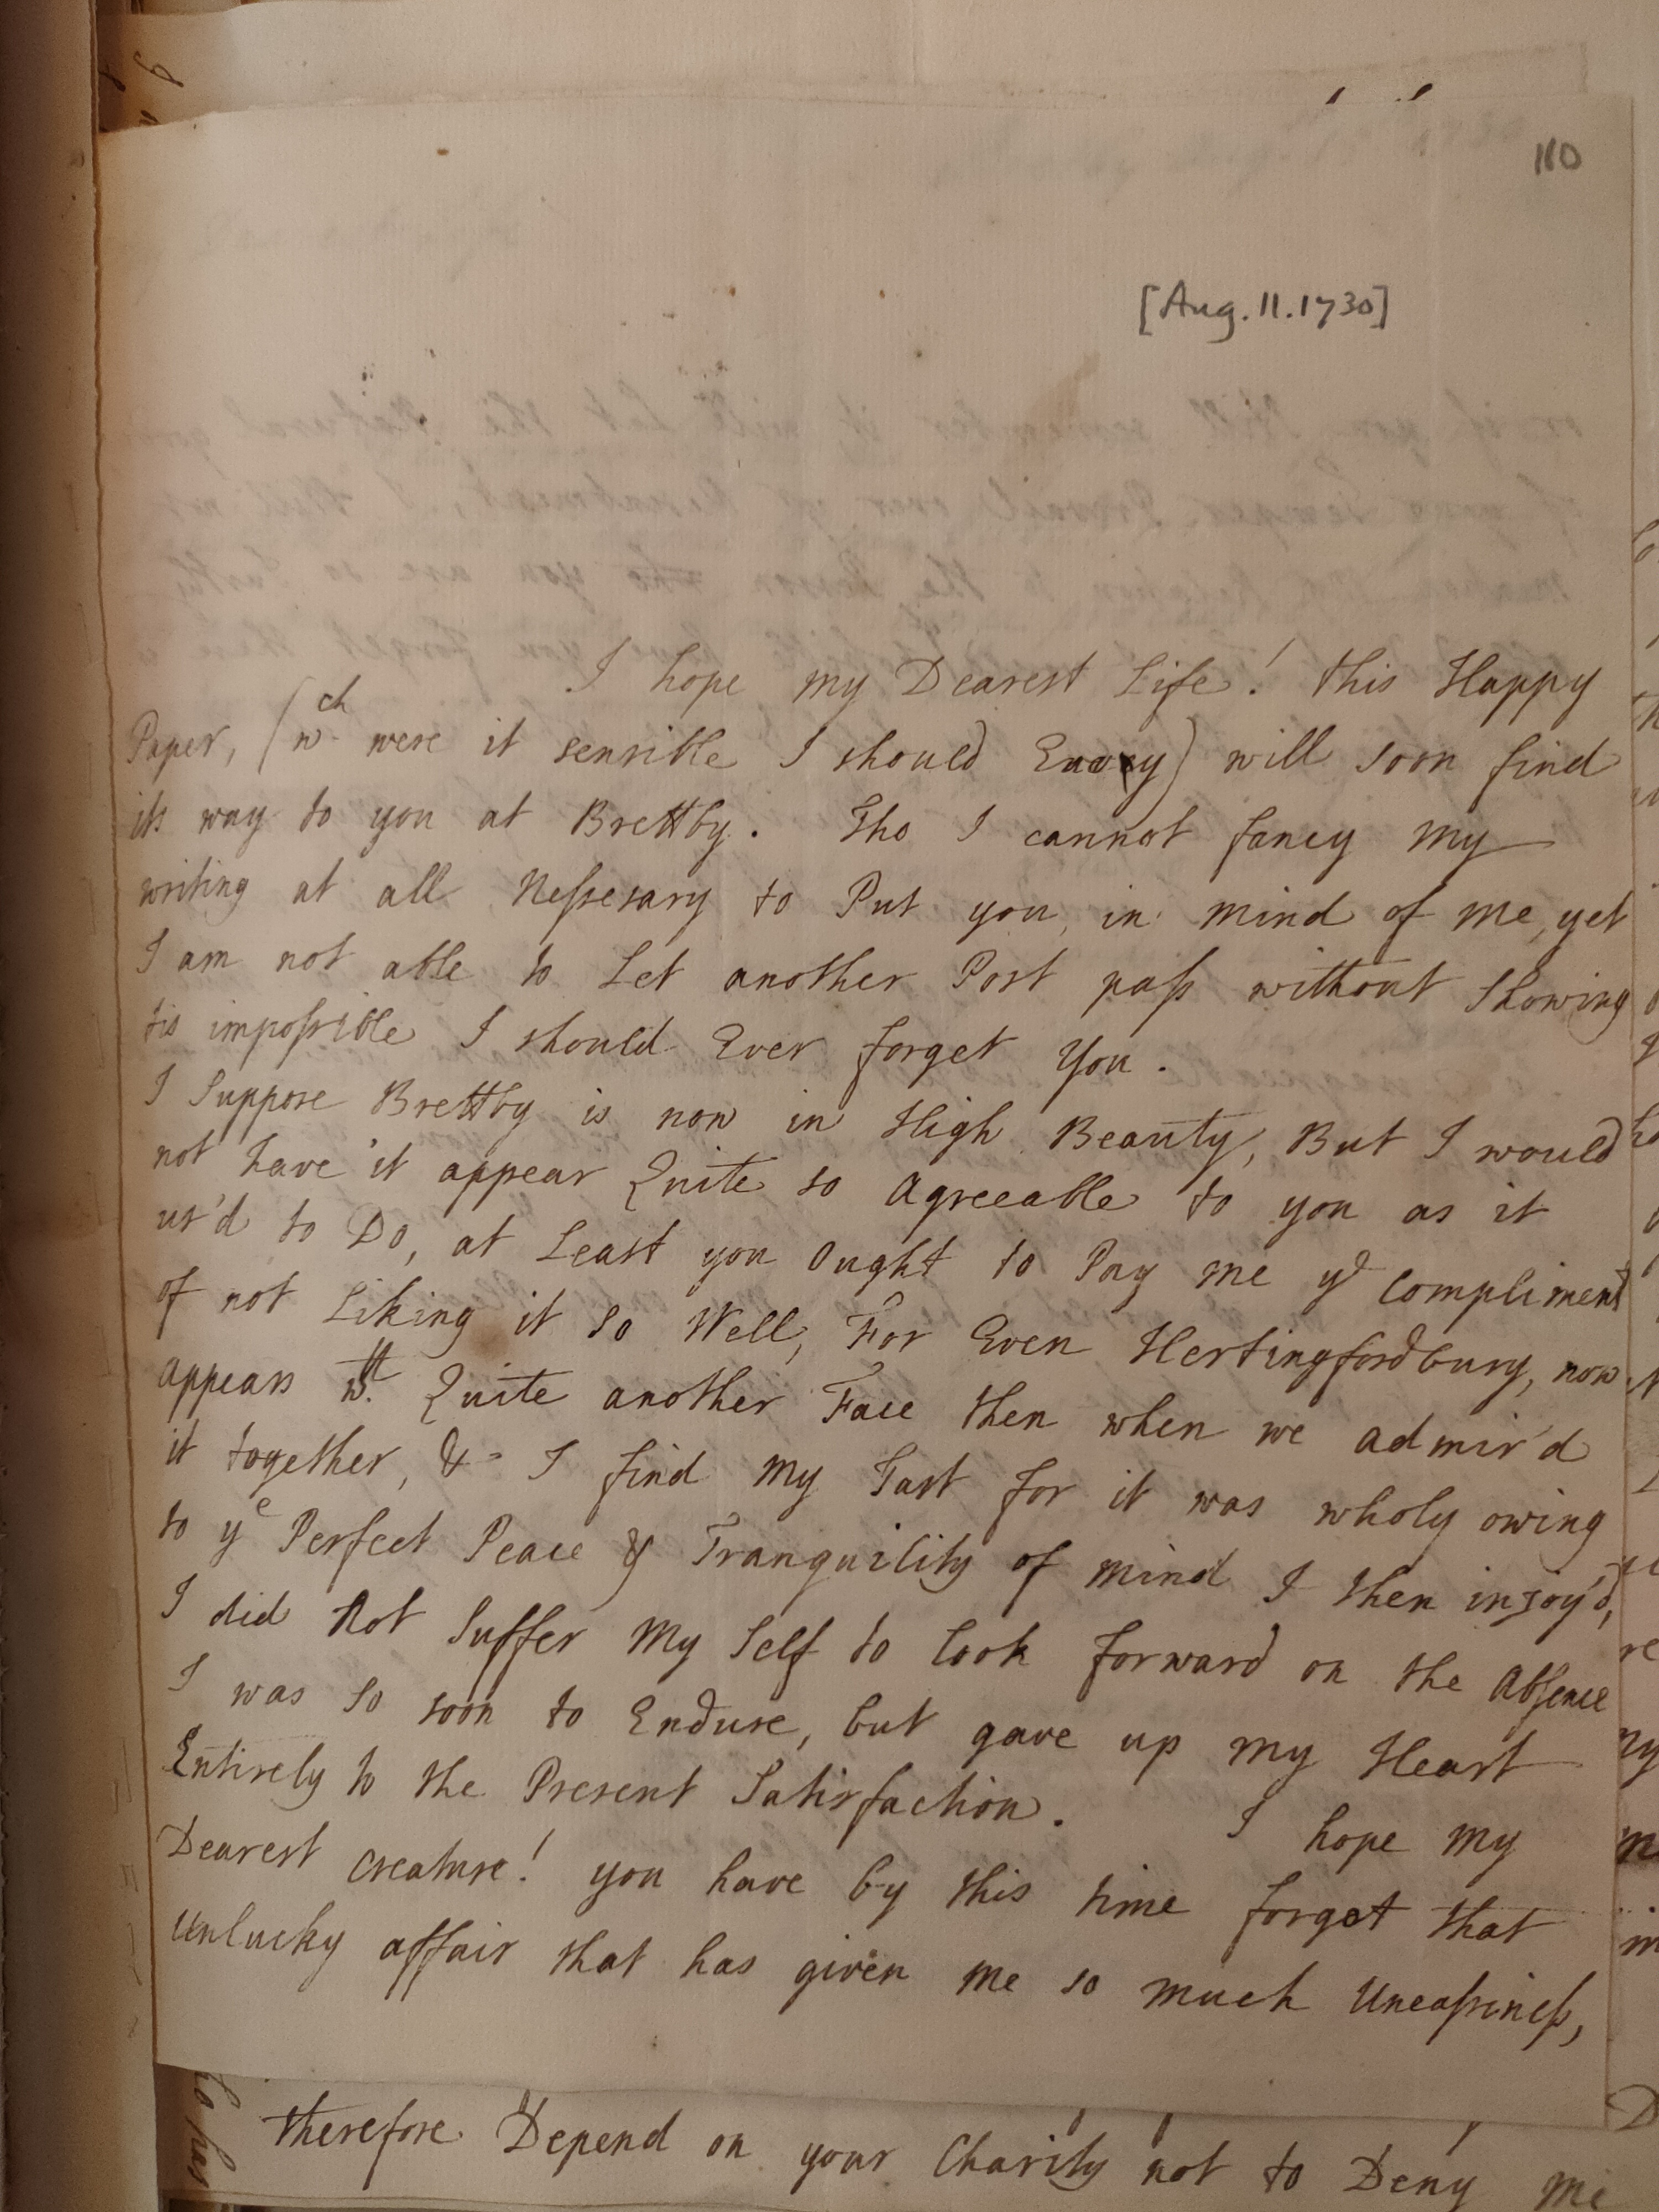 110
[Aug. 11. 1730]
I hope my Dearest Life! this Happy
Paper, (wch were it sensible I should Envy) will soon find
its way to you at Brettby. Tho I cannot fancy my
writing at all Nessesary to Put you in mind of me, yet
I am not able to Let another Post pass without Showing
tis impossible I should Ever forget You.
I Suppose Brettby is now in High Beauty, But I would
not have it appear Quite so Agreeable to you as it
us'd to Do, at Least you Ought to Pay me ye Compliment
of not Liking it so Well, For Even Hertingfordbury, now
appears wth. Quite another Face then when we admir'd
it together, & I find my Tast for it was wholy owing
to ye Perfect Peace & Tranquility of mind I then injoy'd,
I did Not Suffer My Self to look forward on the Absence
I was so soon to Endure, but gave up my Heart
Entirely to the Present Satisfaction. I hope my
Dearest Creature! you have by this time forgot that
Unlucky affair that has given me so much Uneassiness,
therefore Depend on your Charity not to Deny me